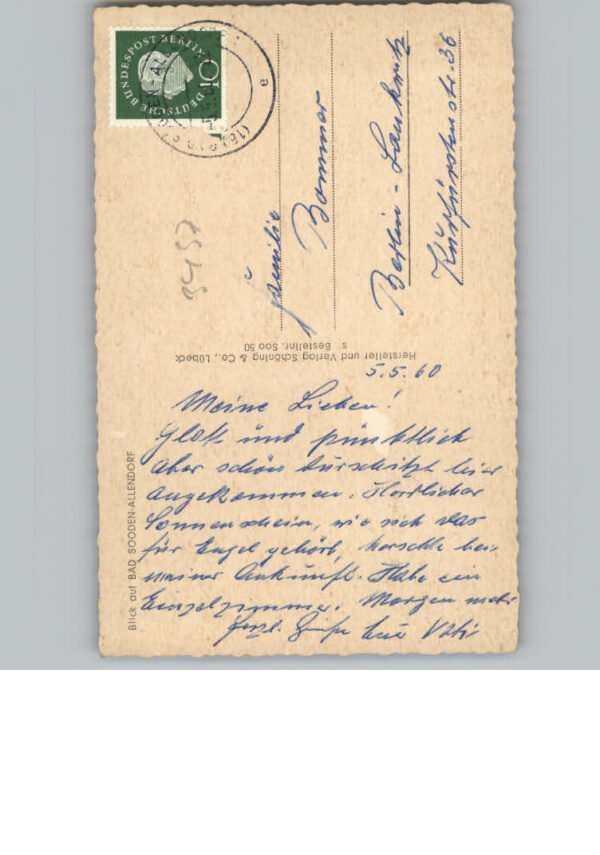 5.5.60
Meine Lieben!
Glatt und pünktlich
aber schön durschwitzt hier
angekommen. Herrlicher
Sonnenschein, wie sich das
für Engel gehört, herschte bei
meiner Ankunft. Habe ein
Einzelzimmer. Morgen mehr
Herzl. Grüße Euer Vati
Familie
Bommer
Berlin - Lankwitz
Kurfürstenstr. 36
Hersteller und Verlag Schöning & Co., Lübeck
s Bestellnr. Soo 50
Blick auf BAD SOODEN-ALLENDORF
DEUTSCHE BUNDESPOST BERLIN
10
(16) BAD
a
3457